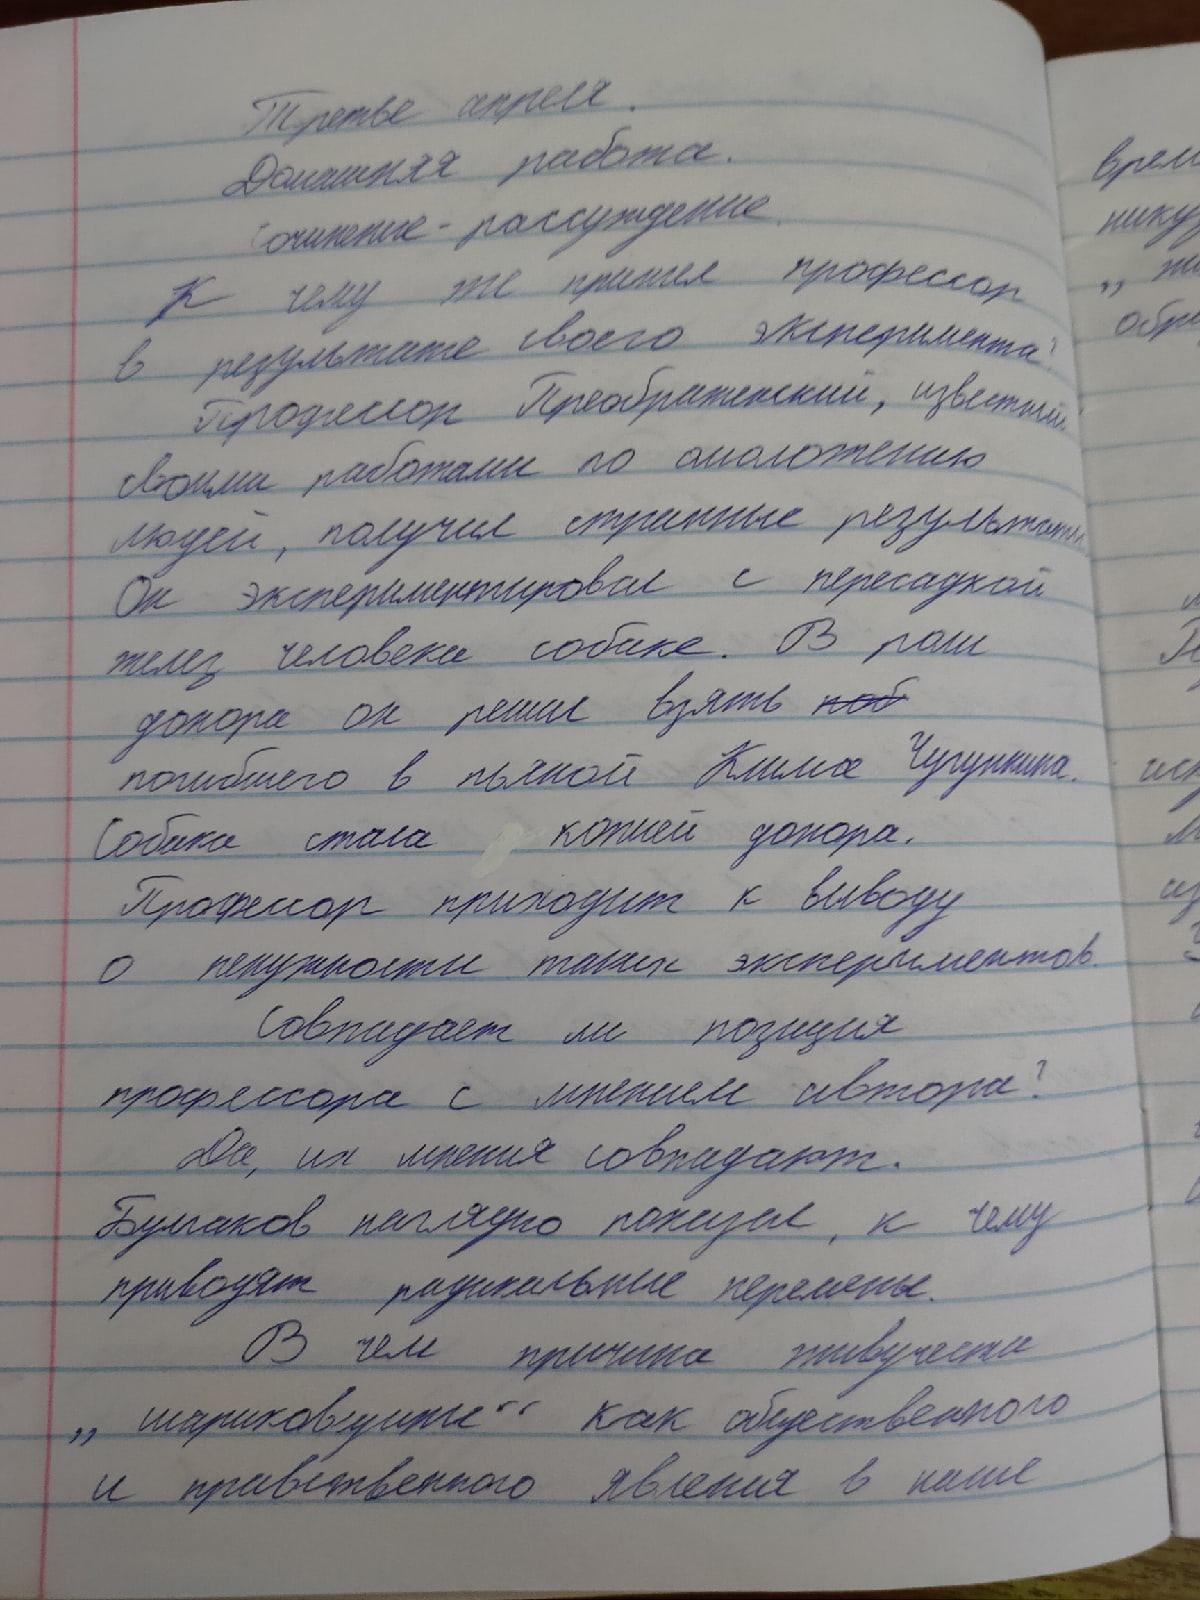 Третье апреля.
Домашняя работа.
Сочинение-рассуждение.
К чему же пришел профессор
в результате своего эксперимента?
Профессор Преображенский, известный
своими работами по омоложению
людей, получил странные результаты.
Он экспериментировал с пересадкой
желез человека собаке. В роли
донора он решил взять
погибшего в пьяной Клима Чугункина.
Собака стала копией донора.
Профессор приходит к выводу
о ненужности таких экспериментов.
Совпадает ли позиция
профессора с мнением автора?
Да, их мнения совпадают.
Булгаков наглядно показал, к чему
приводят радикальные перемены.
В чем причина живучести
„шариковщины“ как общественного
и нравственного явления в наше